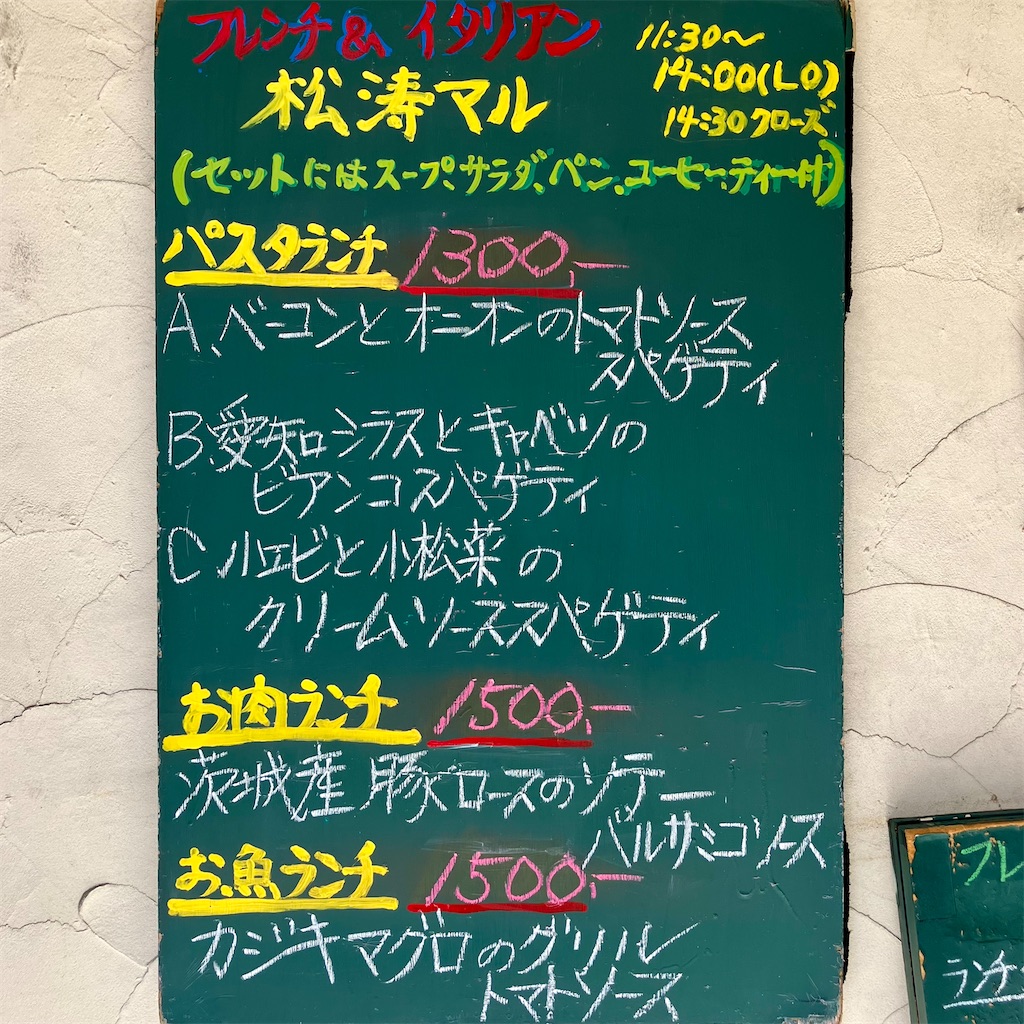 フレンチ&イタリアン
11:30〜
14:00(LO)
14:30クローズ
松涛マル
(セットにはスープ、サラダ、パン、コーヒー、ティー付)
パスタランチ 1300,-
A、ベーコンとオニオンのトマトソース
スパゲティ
B、愛知シラスとキャベツの
ビアンコスパゲティ
C 小エビと小松菜の
クリームソーススパゲティ
お肉ランチ 1500,-
茨城産豚ロースのソテー
バルサミコソース
お魚ランチ 1500,-
カジキマグロのグリル
トマトソース
フレ
ランチ